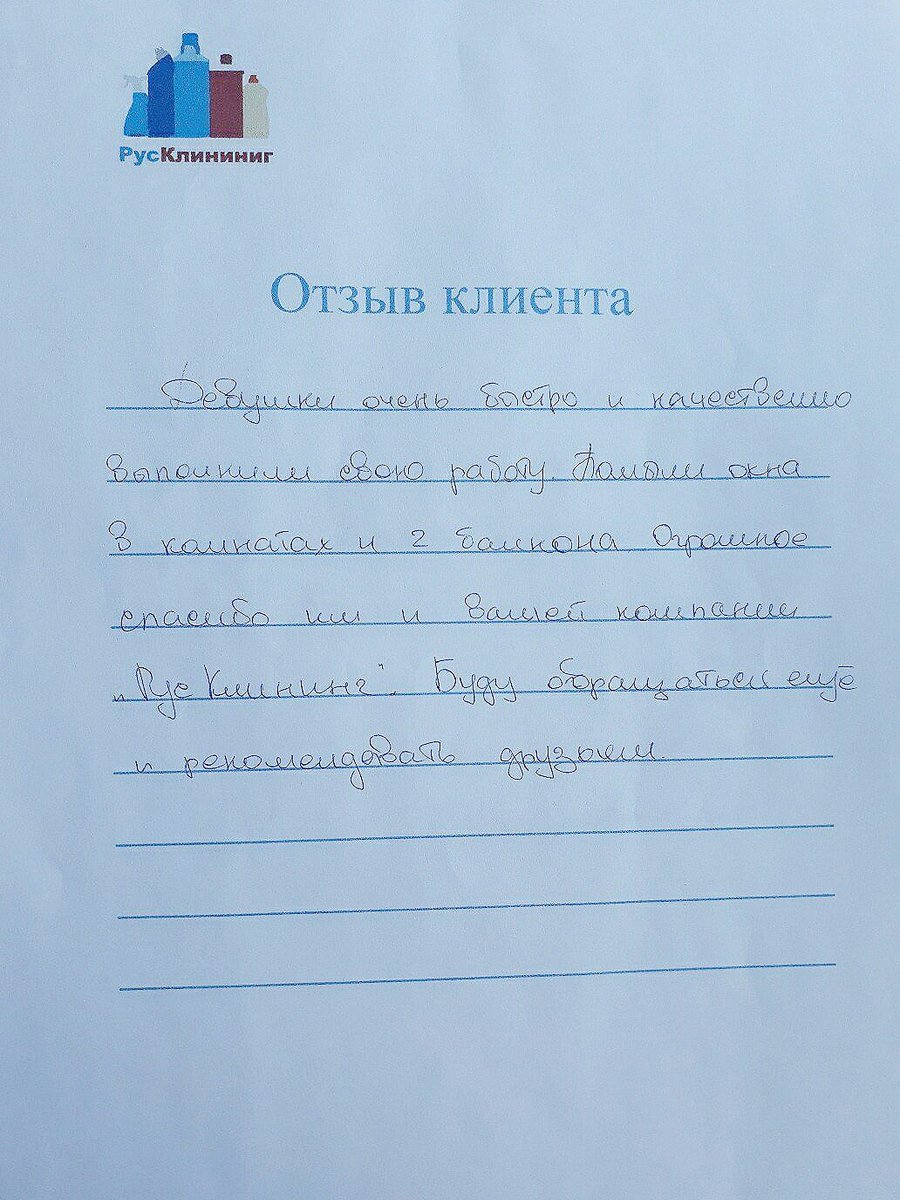 РусКлининиг
Отзыв клиента
Девушки очень быстро и качественно
выполнили свою работу. Помыли окна
в комнатах и 2 балкона Огромное
спасибо им и вашей компании
„Рус Клининг". Буду обращаться ещё
и рекомендовать друзьям.